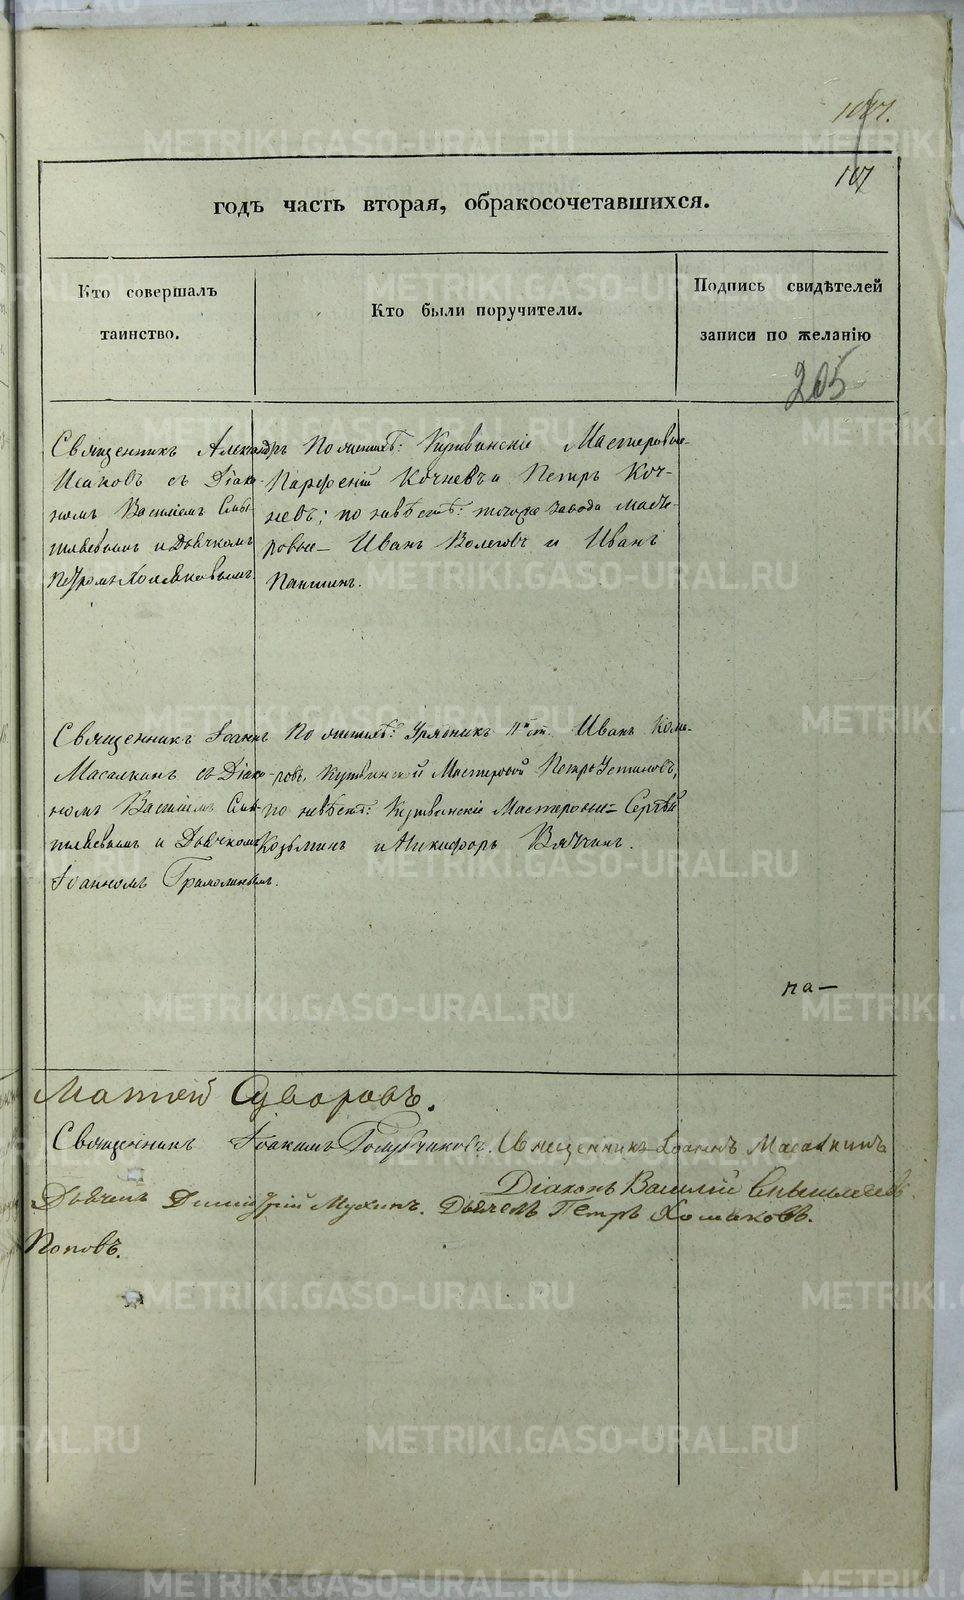 107.
107
годъ часть вторая, обракосочетавшихся.
Кто совершалъ
таинство.
Кто были поручители.
Подпись свидѣтелей
записи по желанію
205
Священникъ Александръ
Исаковъ съ Діако-
номъ Василіемъ
и Дьячкомъ
Петромъ Хомяковымъ.
По женихѣ: Кушвинскіе Мастеровые
Парфеній Кочневъ и Петръ Коч-
невъ; по невѣстѣ: тогоже завода масте-
ровые Иванъ Волеговъ и Иванъ
Паншинъ.
Священникъ Іоаннъ
Масалкинъ съ Діако-
номъ Василіемъ
и Дьячкомъ
Іоанномъ
По женихѣ: Урядникъ ст. Иванъ
Кушвинской Мастеровой Петръ Устиновъ,
по невѣстѣ: Кушвинскіе Мастеровые Сергѣй
Козьминъ и Никифоръ
па
Матѳей Суворовъ.
Священникъ Іоакимъ Голубчиковъ. Священникъ Іоаннъ Масалкинъ
Діаконъ Василій
Дьячекъ Димитрій Мухинъ. Дьячекъ Петръ Хомяковъ.
Поповъ.
METRIKI.GASO-URAL.RU